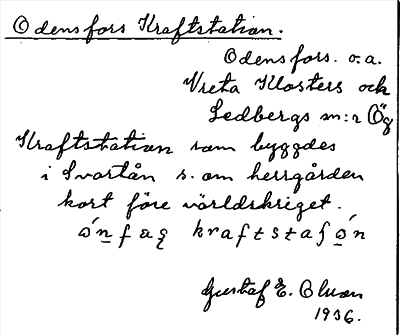 Odensfors Kraftstation.
Odensfors. o. a.
Vreta Klosters och
Ledbergs sn:r Ög
Kraftstation som byggdes
i Svartån s. om herrgården
kort före världskriget.
kraftstaʃón
Gustaf E.
1936.